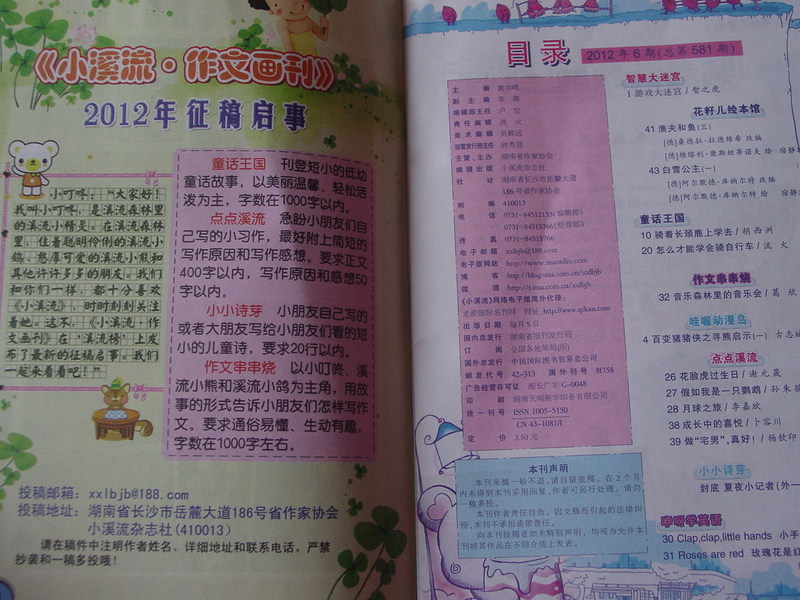 《小溪流·作文画刊》
2012年征稿启事
小叮咚："大家好！
我叫小叮咚，是溪流森林里
的溪流小精灵。在溪流森林
里，住着聪明伶俐的溪流小
鸽、憨厚可爱的溪流小熊和
其他许许多多的朋友。我们
和你们一样，都十分喜欢
《小溪流》，时时刻刻关注
着她。这不，《小溪流·作
文画刊》在'溪流榜'上发
布了最新的征稿启事。我们
一起来看看吧！"
童话王国 刊登短小的低幼
童话故事，以美丽温馨、轻松活
泼为主，字数在1000字以内。
点点溪流 急盼小朋友们自
己写的小习作，最好附上简短的
写作原因和写作感想。要求正文
400字以内，写作原因和感想50
字以内。
小小诗芽 小朋友自己写的
或者大朋友写给小朋友们看的短
小的儿童诗，要求20行以内。
作文串串烧 以小叮咚、溪
流小熊和溪流小鸽为主角，用故
事的形式告诉小朋友们怎样写作
文。要求通俗易懂、生动有趣，
字数在1000字左右。
投稿邮箱：xxlbjb@188.com
投稿地址：湖南省长沙市岳麓大道186号省作家协会
小溪流杂志社(410013)
请在稿件中注明作者姓名、详细地址和联系电话。严禁
抄袭和一稿多投哦！
目录 2012年6期(总第581期)
主 编
副主编
编辑部主任
责任编辑
美术编辑
经营发行部主任
主管、主办 湖南省作家协会
编辑出版 小溪流杂志社
社 址 湖南省长沙市岳麓大道
186号省作家协会
邮 编 410013
电 话 0731-84512153(编辑部)
传 真
电子邮箱 xxlbjb@188.com
电子版网站 http://www.xiaoxiliu.com
博 客 http://blog.sina.com.cn/xxlbjb
微 博 http://t.sina.com.cn/xxlbjb
《小溪流》网络电子版海外代理：
龙源国际名刊网 网址：http://www.qikan.com
出版日期 每月5日
国内总发行 湖南省报刊发行局
订 阅 全国各地邮局(所)
国外总发行 中国国际图书贸易总公司
邮发代号 42-313 国外刊号 M758
广告经营许可证 湘长广字G-0048
印 刷 湖南天闻新华印务有限公司
统一刊号 ISSN 1005-5150
CN 43-1081/I
定 价 3.50元
本刊声明
本刊来稿一般不退，请自留底稿。在2个月
内未得到本刊采用回复，作者可另行处理。请勿
一稿多投。
本刊作者责任自负，因文稿而引起的法律纠
纷，本刊不承担连带责任。
向本刊投稿者如无特别声明，均视为允许本
刊将其作品在不同介质上发表。
智慧大迷宫
1 游戏大迷宫 / 智之虎
花籽儿绘本馆
41 渔夫和鱼(三)
[德]桑德拉·拉德维希 改编
[德]维塔利·康斯坦蒂诺夫 绘
43 白雪公主(一)
[德]阿尔默德·库纳尔特 改编
[德]阿尔默德·库纳尔特 绘
童话王国
10 骑着长颈鹿上学去 / 胡西洲
20 怎么才能学会骑自行车 / 流火
作文串串烧
32 音乐森林里的音乐会 /
哇喔动漫岛
4 百变猪猪侠之寻熊启示(一)
点点溪流
26 花脸虎过生日 / 谢元晟
27 假如我是一只鹦鹉 /
28 月球之旅 / 李嘉欣
38 成长中的喜悦 / 卜容川
39 做"宅男"，真好！ / 杨钦印
小小诗芽
封底 夏夜小记者(外一
咿呀学英语
30 Clap,clap,little hands 小手
31 Roses are red 玫瑰花是红